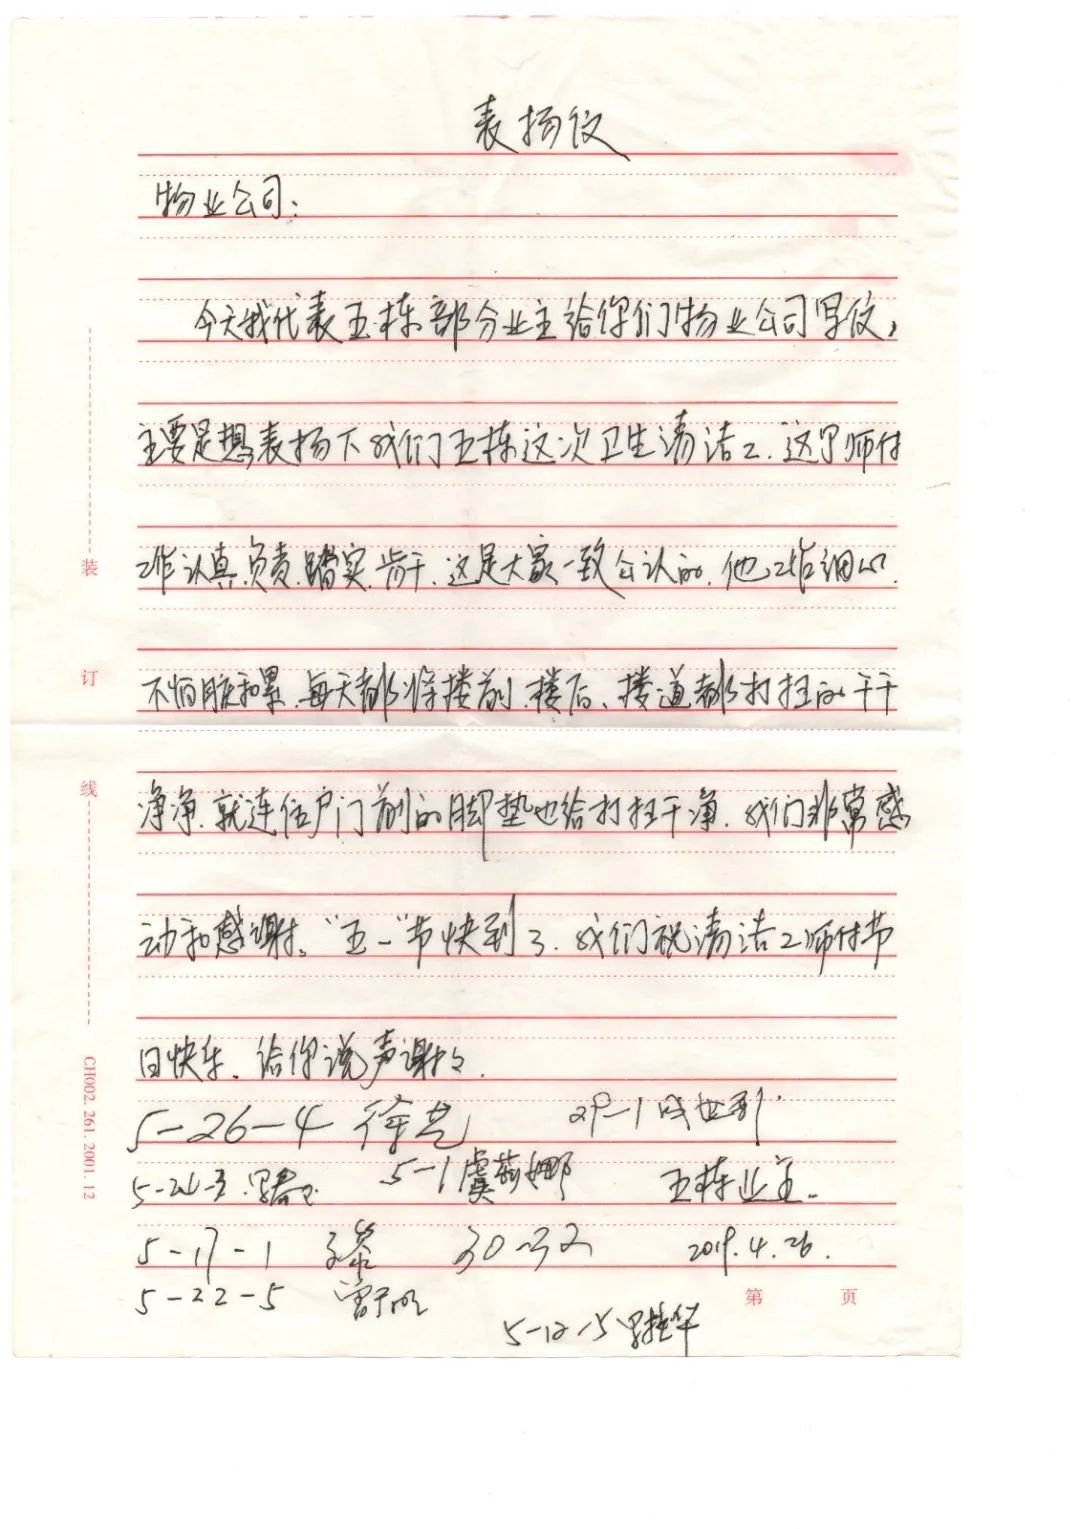 表扬信
物业公司：
今天我代表五栋部分业主给你们物业公司写信，
主要是想表扬下我们五栋这次卫生清洁工.这个师付
工作认真.负责.踏实.肯干.这是大家一致公认的.他工作细心.
不怕脏和累.每天都将楼前.楼后、楼道都打扫的干干
净净.就连住户门前的脚垫也给打扫干净.我们非常感
动和感谢。"五一"节快到了.我们祝清洁工师付节
日快乐.给你说声谢谢.
5-26-4 徐 29-1
5-1 虞莉娜 五栋业主
5-17-1 30-32 2019.4.26.
5-22-5
5-12-5
装
订
线
CH002.261.2001.12
第 页